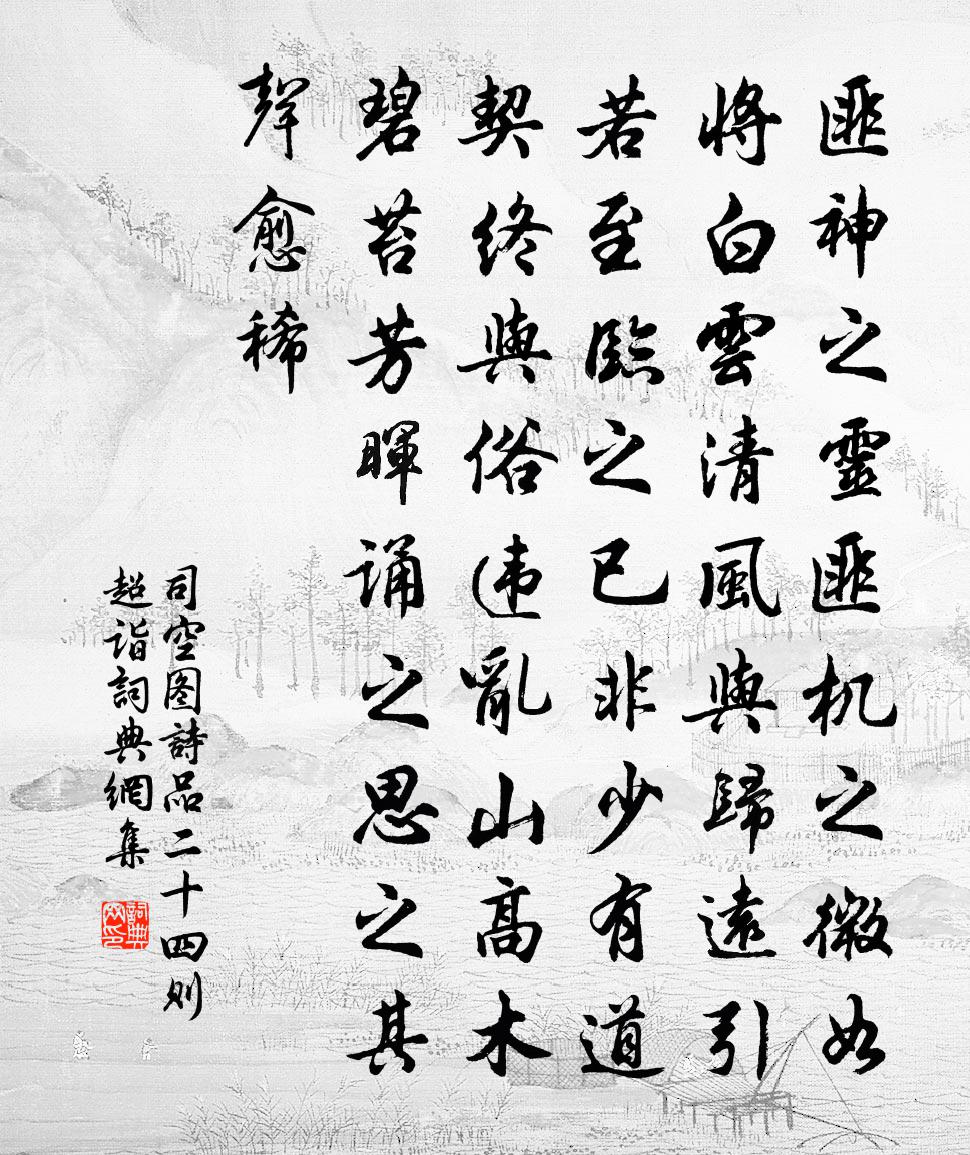 匪神之靈匪机之微如
將白雲清風與歸遠引
若至臨之已非少有道
契終與俗违亂山高木
碧苔芳暉诵之思之其
聲愈稀
司空图詩品二十四则
超诣詞典網集
詞典网印